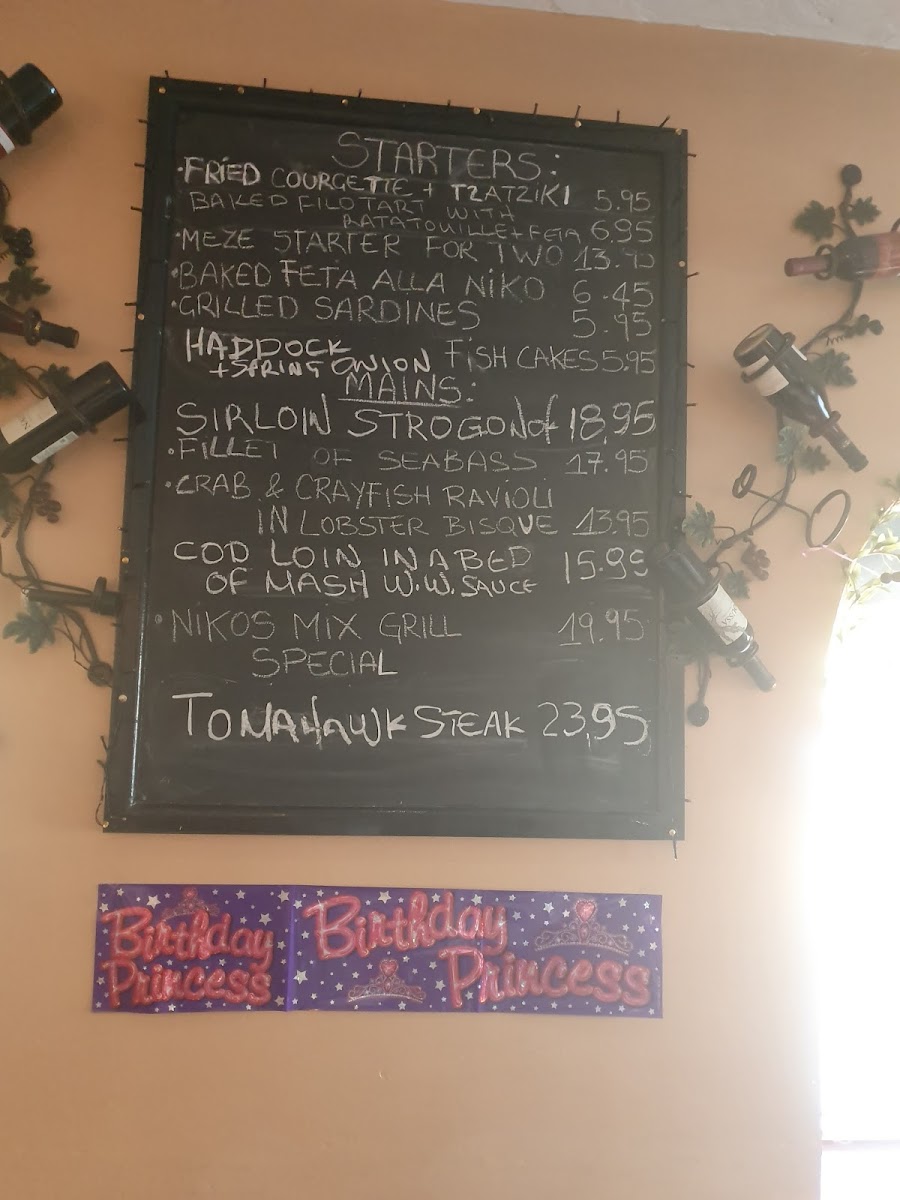 STARTERS:
· FRIED COURGETTE + TZATZIKI 5.95
BAKED FILO TART WITH
RATATOUILLE + FETA 6.95
· MEZE STARTER FOR TWO 13.95
· BAKED FETA ALLA NIKO 6.45
· GRILLED SARDINES 5.95
HADDOCK
+ SPRING ONION FISH CAKES 5.95
MAINS:
SIRLOIN STROGONOf 18.95
· FILLET OF SEABASS 17.95
· CRAB & CRAYFISH RAVIOLI
IN LOBSTER BISQUE 13.95
COD LOIN IN A BED
OF MASH W.W. SAUCE 15.95
· NIKOS MIX GRILL 19.95
SPECIAL
TOMAHAWK STEAK 23,95
Birthday Princess
Birthday Princess